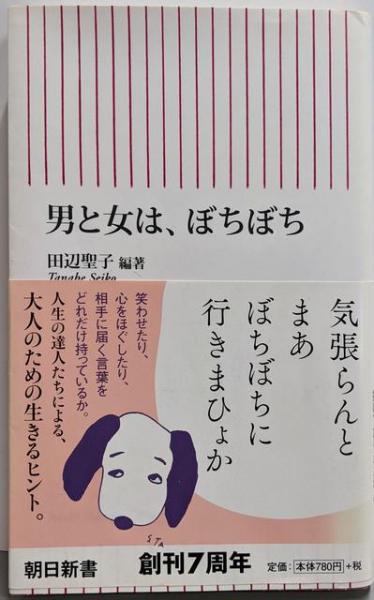 男と女は、ぼちぼち
田辺聖子 編著
Tanabe Seiko
気張らんと
まあ
ぼちぼちに
行きまひょか
笑わせたり、
心をほぐしたり、
相手に届く言葉を
どれだけ持っているか。
人生の達人たちによる、
大人のための生きるヒント。
STA
朝日新書
創刊7周年
定価：本体780円+税